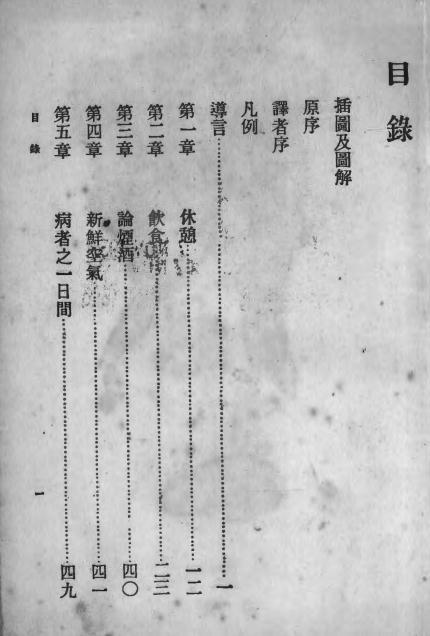 目錄
插圖及圖解
原序
譯者序
凡例
導言……一
第一章 休憩……一二
第二章 飲食……二三
第三章 論煙酒……四〇
第四章 新鮮空氣……四一
第五章 病者之一日間……四九
目錄 一